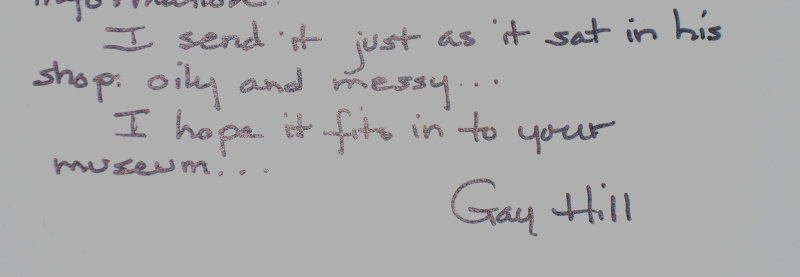 information.
I send it just as it sat in his
shop: oily and messy...
I hope it fits in to your
museum...
Gay Hill